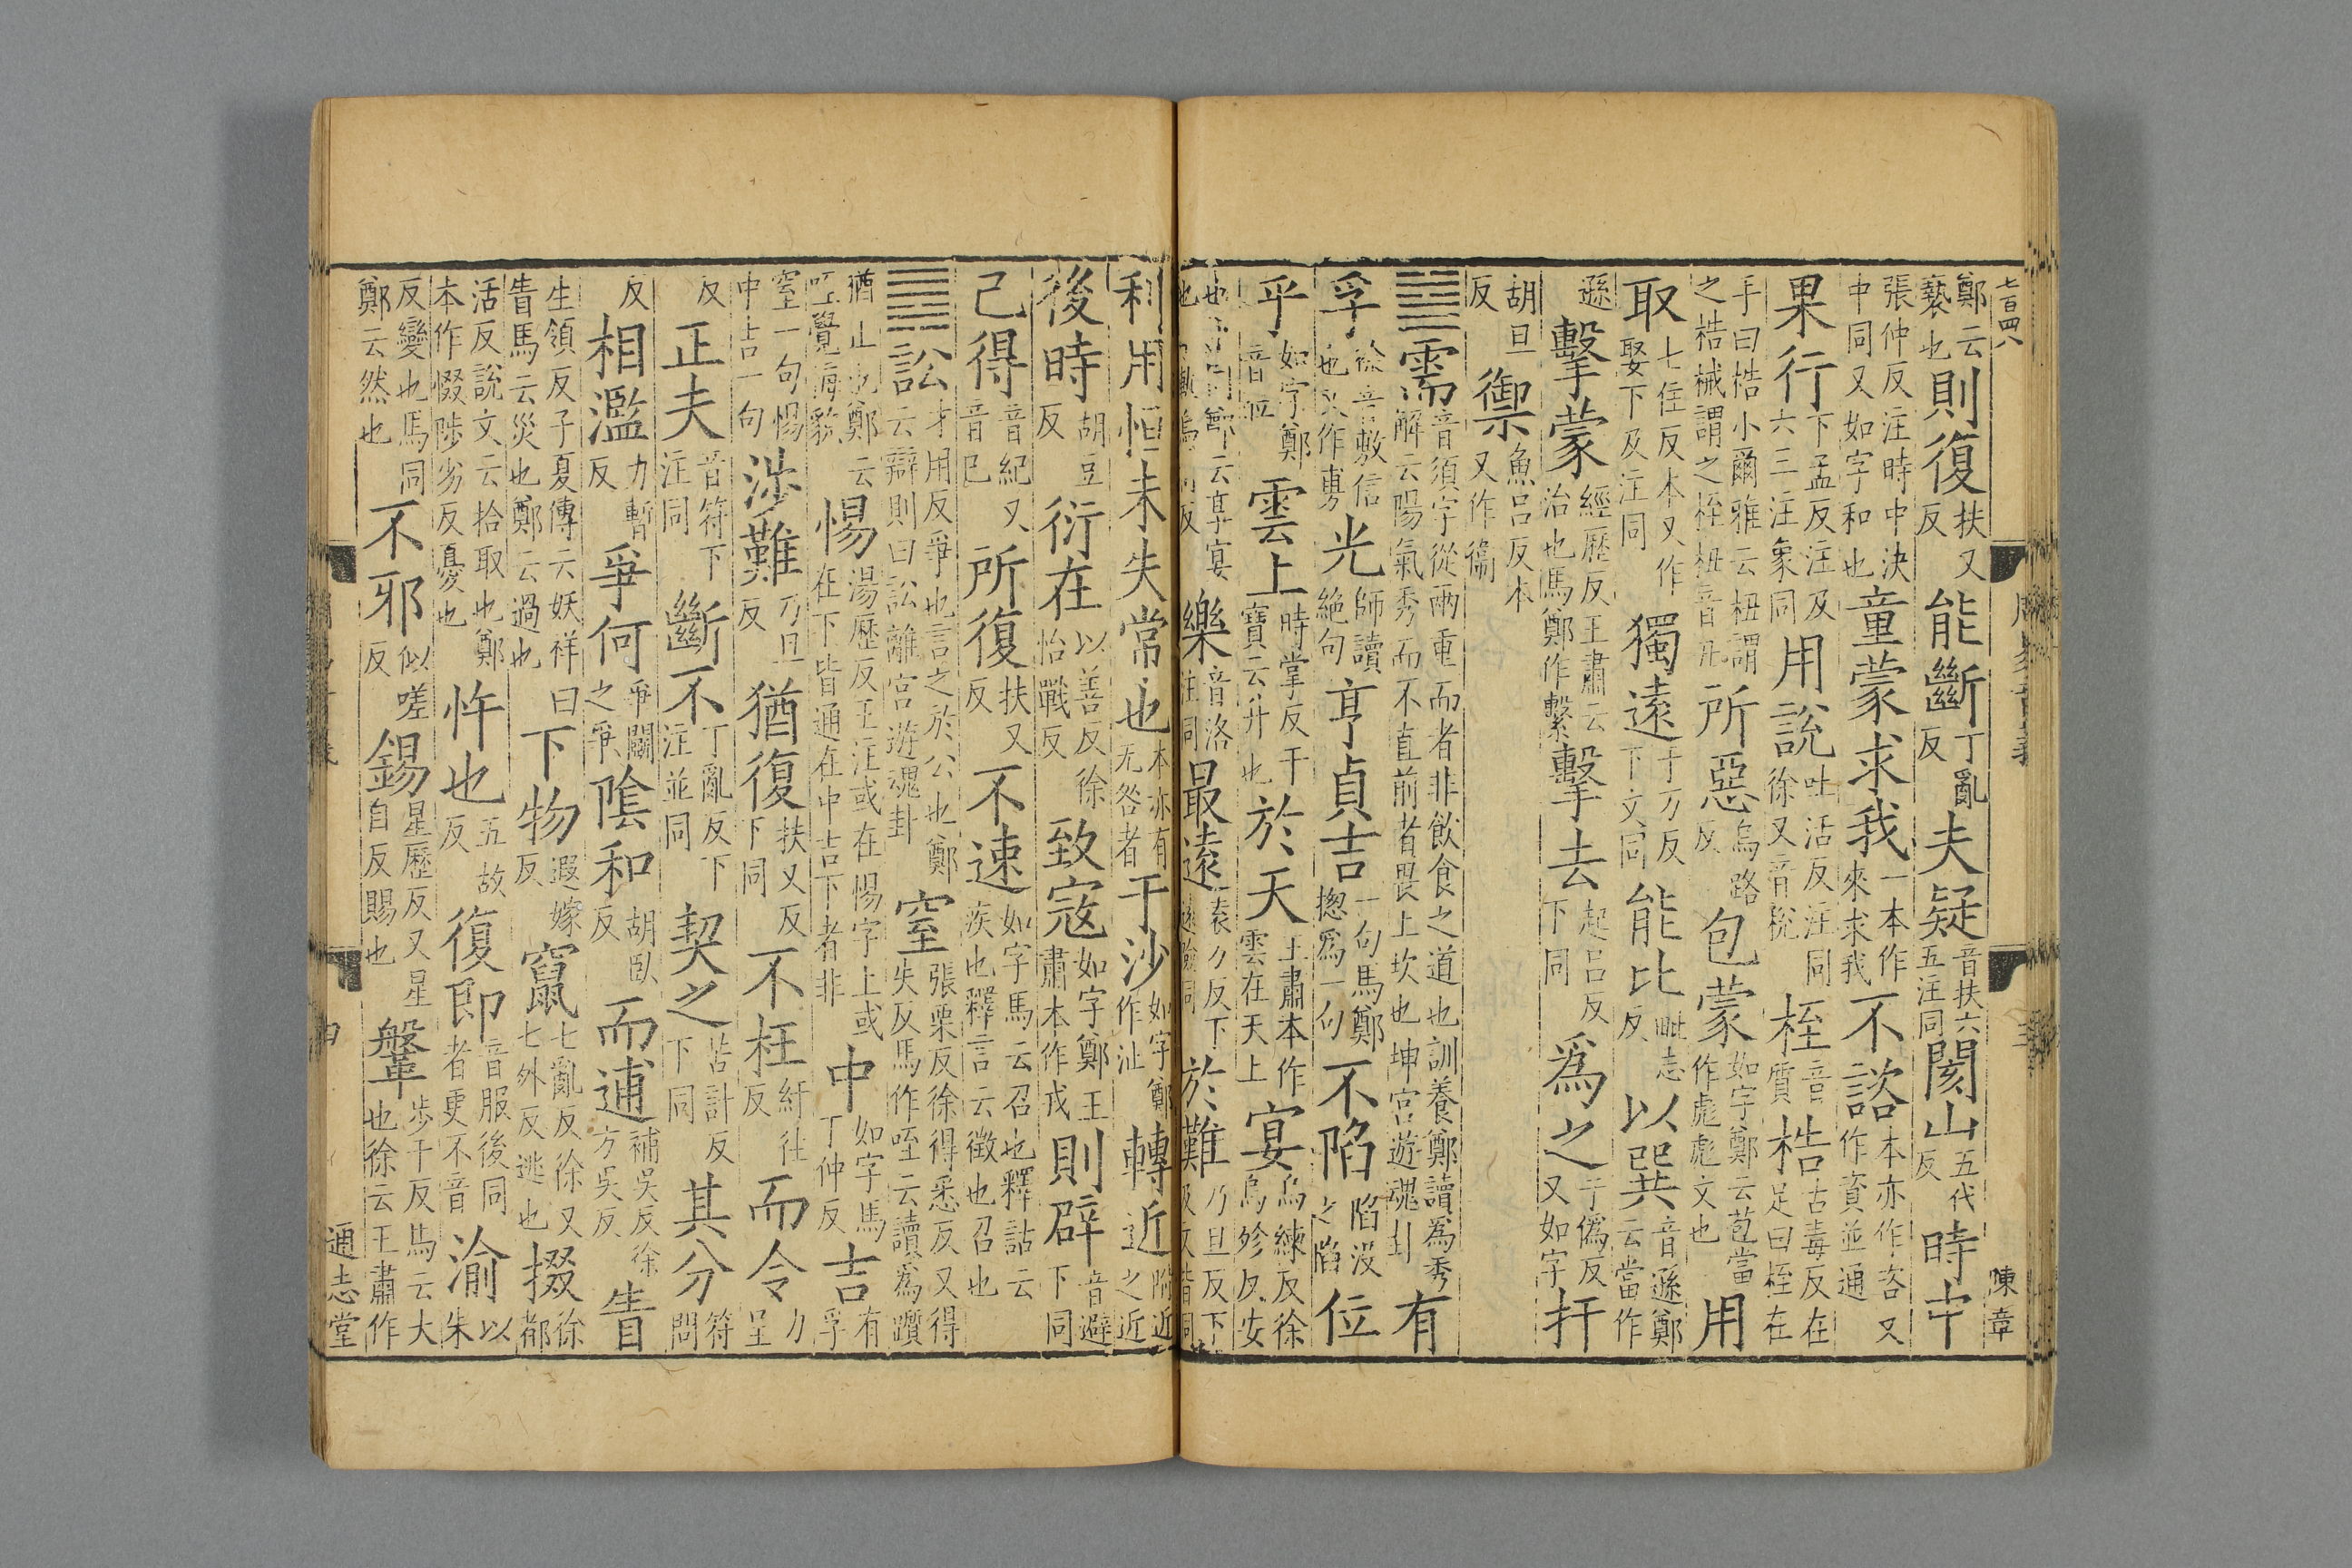 七百四八
鄭云褻也則復扶又反能斷丁亂反夫疑音扶六五注同閡山五代反時中
張仲反注時中決中同又如字和也童蒙求我一本作來求我不諮本亦作咨又作資並通
果行下孟反注及六三注象同用說吐活反注同徐又音稅桎音質梏古毒反在足曰桎在
手曰梏小爾雅云杻謂之梏械謂之桎杻音丑所惡烏路反包蒙如字鄭云苞當作彪彪文也用
取七住反本又作娶下及注同獨遠于万反下文同能比毗志反以巽音遜鄭云當作
遜擊蒙經歷反王肅云治也馬鄭作繫擊去起呂反下同爲之于僞反又如字扞
胡旦反禦魚呂反本又作衞
䷄需音須字從雨重而者非飲食之道也訓養鄭讀爲秀解云陽氣秀而不直前者畏上坎也坤宮遊魂卦有
孚徐音敷信也又作旉光師讀絕句亨貞吉一句馬鄭揔爲一句不陷陷没之陷位
乎如字鄭音雲上時掌反干寶云升也於天王肅本作雲在天上宴烏練反徐烏殄反安
也鄭云享宴也樂音洛注同最遠袁万反下遠險同於難乃旦反下及文皆同
陳章
利用恒未失常也本亦有无咎者于沙如字鄭作沚轉近附近之近
後時胡豆反衍在以善反徐怡戰反致寇如字鄭王肅本作戎則辟音避下同
己得音紀又音已所復扶又反不速如字馬云召也釋詁云疾也釋言云徵也召也
䷅訟才用反爭也言之於公也鄭云辯則曰訟離宮遊魂卦窒張栗反徐得悉反又得失反馬作咥云讀爲躓
猶止也鄭云咥覺悔皃惕湯歷反王注或在惕字上或在下皆通在中吉下者非中如字馬丁仲反吉有孚
窒一句惕中吉一句涉難乃旦反猶復扶又反下同不枉紆往反而令力呈
反正夫音符下注同斷不丁亂反下注並同契之苦計反下同其分符問
反相濫力暫反爭何爭鬭之爭陰和胡臥反而逋補吳反徐方吳反眚
生領反子夏傳云妖祥曰眚馬云災也鄭云過也下物遐嫁反竄七亂反徐又七外反逃也掇徐都
活反說文云拾取也鄭本作惙陟劣反憂也忤也五故反復即音服後同者更不音渝以朱
反變也馬同鄭云然也不邪似嗟反錫星歷反又星自反賜也鞶步干反馬云大也徐云王肅作
通志堂